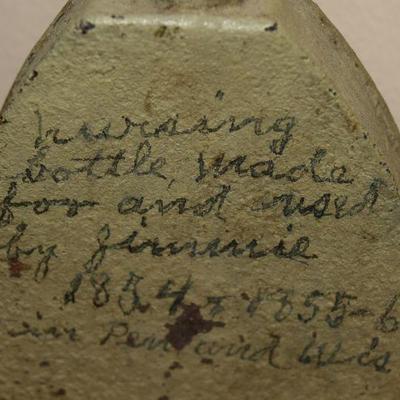 nursing
bottle made
for and used
by Jimmie
1854 - 1855-6
in Pen and Wis